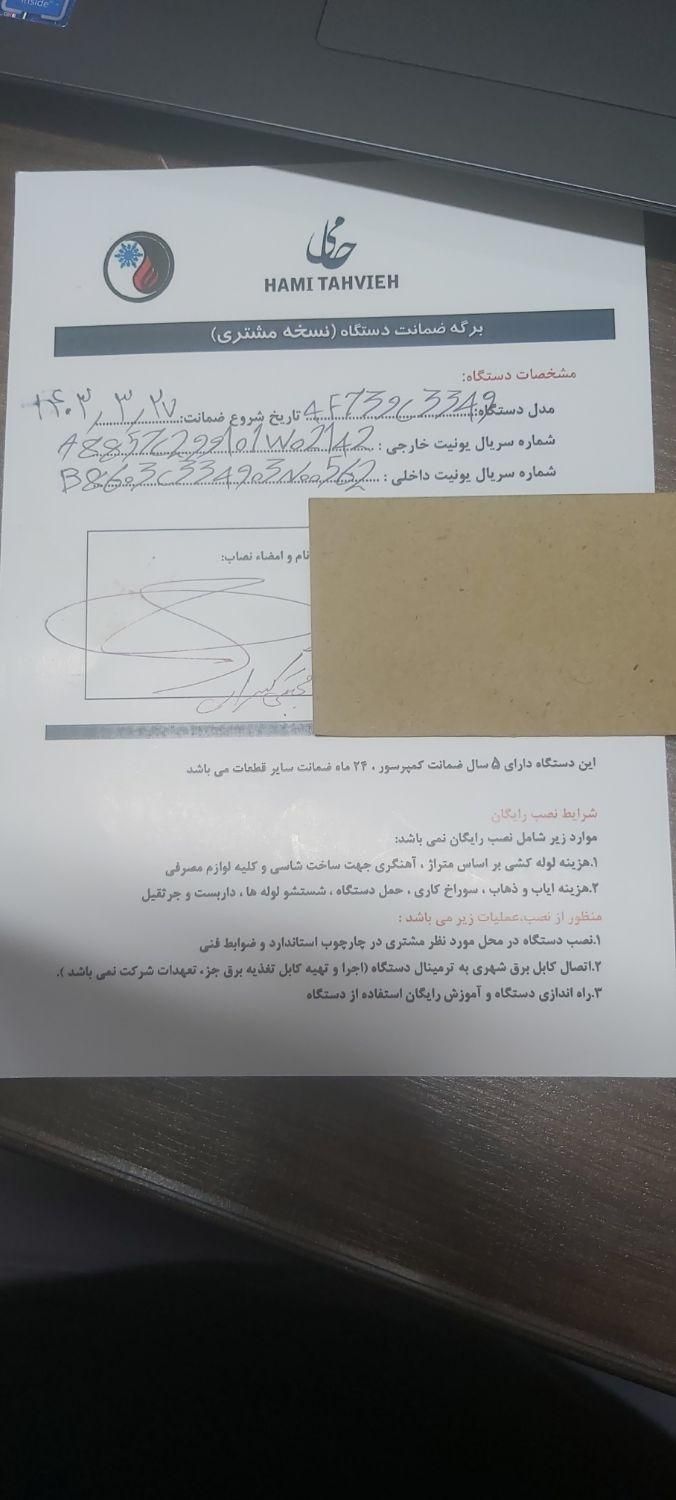 inside
حامی
HAMI TAHVIEH
برگه ضمانت دستگاه (نسخه مشتری)
مشخصات دستگاه:
مدل دستگاه: 4F739C3349 تاریخ شروع ضمانت: ۱۴۰۳/۳/۲۷
شماره سریال یونیت خارجی : A8857C299101W02142
شماره سریال یونیت داخلی : B8603C334903N00562
نام و امضاء نصاب:
این دستگاه دارای ۵ سال ضمانت کمپرسور ، ۲۴ ماه ضمانت سایر قطعات می باشد
شرایط نصب رایگان
موارد زیر شامل نصب رایگان نمی باشد:
۱.هزینه لوله کشی بر اساس متراژ ، آهنگری جهت ساخت شاسی و کلیه لوازم مصرفی
۲.هزینه ایاب و ذهاب ، سوراخ کاری ، حمل دستگاه ، شستشو لوله ها ، داربست و جرثقیل
منظور از نصب،عملیات زیر می باشد :
۱.نصب دستگاه در محل مورد نظر مشتری در چارچوب استاندارد و ضوابط فنی
۲.اتصال کابل برق شهری به ترمینال دستگاه (اجرا و تهیه کابل تغذیه برق جزء تعهدات شرکت نمی باشد ).
۳.راه اندازی دستگاه و آموزش رایگان استفاده از دستگاه